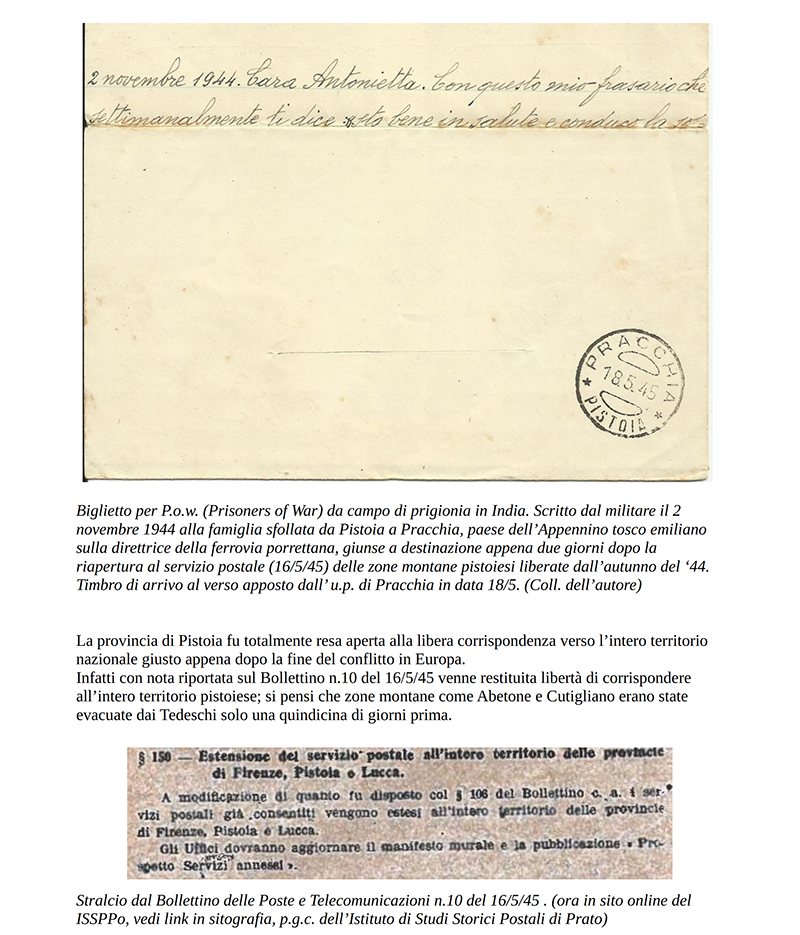 2 novembre 1944. Cara Antonietta. Con questo mio frasario che
settimanalmente ti dice sto bene in salute e conduco la
PRACCHIA
18.5.45
PISTOIA
Biglietto per P.o.w. (Prisoners of War) da campo di prigionia in India. Scritto dal militare il 2
novembre 1944 alla famiglia sfollata da Pistoia a Pracchia, paese dell’Appennino tosco emiliano
sulla direttrice della ferrovia porrettana, giunse a destinazione appena due giorni dopo la
riapertura al servizio postale (16/5/45) delle zone montane pistoiesi liberate dall’autunno del ‘44.
Timbro di arrivo al verso apposto dall’ u.p. di Pracchia in data 18/5. (Coll. dell’autore)
La provincia di Pistoia fu totalmente resa aperta alla libera corrispondenza verso l’intero territorio
nazionale giusto appena dopo la fine del conflitto in Europa.
Infatti con nota riportata sul Bollettino n.10 del 16/5/45 venne restituita libertà di corrispondere
all’intero territorio pistoiese; si pensi che zone montane come Abetone e Cutigliano erano state
evacuate dai Tedeschi solo una quindicina di giorni prima.
§ 150 — Estensione del servizio postale all’intero territorio delle provincie
di Firenze, Pistoia e Lucca.
A modificazione di quanto fu disposto col § 106 del Bollettino c. a. i ser-
vizi postali già consentiti vengono estesi all’intero territorio delle provincie
di Firenze, Pistoia e Lucca.
Gli Uffici dovranno aggiornare il manifesto murale e la pubblicazione « Pro-
spetto Servizi annessi ».
Stralcio dal Bollettino delle Poste e Telecomunicazioni n.10 del 16/5/45 . (ora in sito online del
ISSPPo, vedi link in sitografia, p.g.c. dell’Istituto di Studi Storici Postali di Prato)